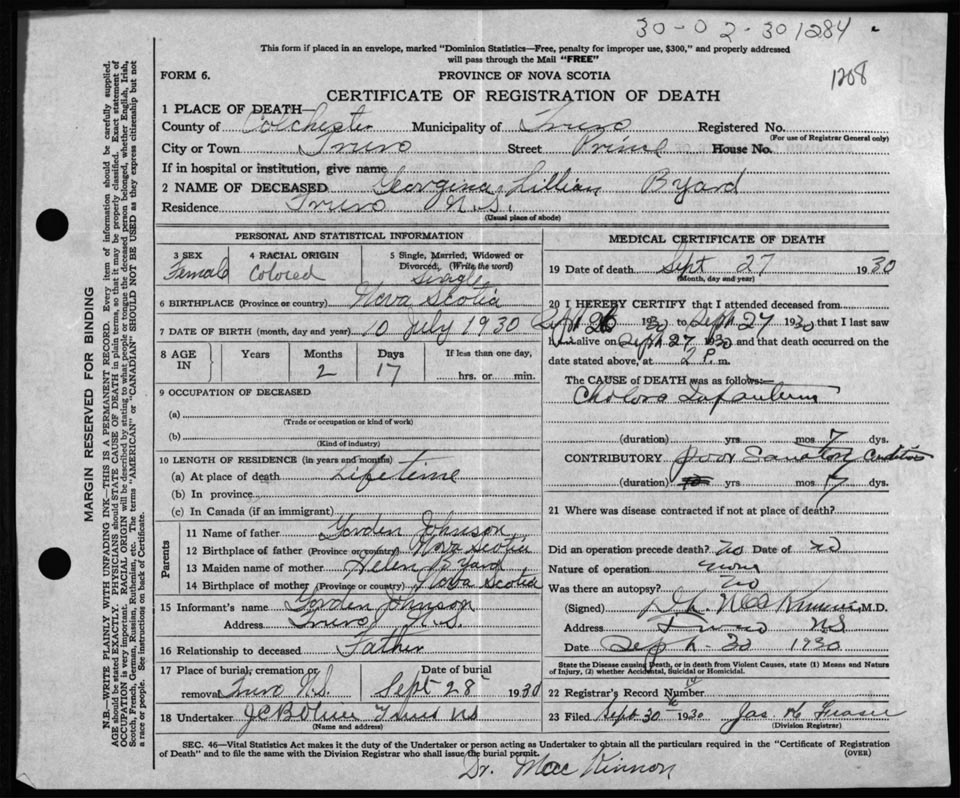 30-02-301284
1208
This form if placed in an envelope, marked "Dominion Statistics—Free, penalty for improper use, $300," and properly addressed
will pass through the Mail "FREE"
FORM 6. PROVINCE OF NOVA SCOTIA
CERTIFICATE OF REGISTRATION OF DEATH
1 PLACE OF DEATH—
County of Colchester Municipality of Truro Registered No.
(For use of Registrar General only)
City or Town Truro Street Prince House No.
If in hospital or institution, give name
2 NAME OF DECEASED Georgina Lillian Byard
Residence Truro N.S.
(Usual place of abode)
PERSONAL AND STATISTICAL INFORMATION
3 SEX 4 RACIAL ORIGIN 5 Single, Married, Widowed or
Divorced, (Write the word)
Female Colored Single
6 BIRTHPLACE (Province or country) Nova Scotia
7 DATE OF BIRTH (month, day and year) 10 July 1930
8 AGE IN Years Months Days If less than one day,
2 17 hrs. or min.
9 OCCUPATION OF DECEASED
(a)
(Trade or occupation or kind of work)
(b)
(Kind of industry)
10 LENGTH OF RESIDENCE (in years and months)
(a) At place of death Lifetime
(b) In province
(c) In Canada (if an immigrant)
Parents
11 Name of father Gorden Johnson
12 Birthplace of father (Province or country) Nova Scotia
13 Maiden name of mother Helen Byard
14 Birthplace of mother (Province or country) Nova Scotia
15 Informant's name Gorden Johnson
Address Truro N.S.
16 Relationship to deceased Father
17 Place of burial, cremation or Date of burial
removal Truro N.S. Sept 28 1930
18 Undertaker Truro NS
(Name and address)
MEDICAL CERTIFICATE OF DEATH
19 Date of death Sept 27 1930
(Month, day and year)
20 I HEREBY CERTIFY that I attended deceased from
Sept 26 1930 to Sept 27 1930 that I last saw
h alive on Sept 27 1930 and that death occurred on the
date stated above, at 2 P. m.
The CAUSE of DEATH was as follows:—
Cholera Infantum
(duration) yrs mos 7 dys.
CONTRIBUTORY poor Sanatory Conditions
(duration) yrs mos 7 dys.
21 Where was disease contracted if not at place of death?
Did an operation precede death? no Date of no
Nature of operation none
Was there an autopsy? no
(Signed) M.D.
Address Truro NS
Date Sept 30 1930
State the Disease causing Death, or in death from Violent Causes, state (1) Means and Nature
of Injury, (2) whether Accidental, Suicidal or Homicidal
22 Registrar's Record Number
23 Filed Sept 30 1930 Jas. H Frasier
(Division Registrar)
SEC. 46—Vital Statistics Act makes it the duty of the Undertaker or person acting as Undertaker to obtain all the particulars required in the "Certificate of Registration
of Death" and to file the same with the Division Registrar who shall issue the burial permit. (OVER)
Dr. Mac Kinnon
MARGIN RESERVED FOR BINDING
N.B.—WRITE PLAINLY WITH UNFADING INK—THIS IS A PERMANENT RECORD. Every item of information should be carefully supplied.
AGE should be stated EXACTLY. PHYSICIANS should STATE CAUSE OF DEATH in plain terms, so that it may be properly classified. Exact statement of
OCCUPATION is very important. RACIAL ORIGIN will be described by stating to what people or tongue the deceased person belonged, whether English, Irish,
Scotch, French, German, Russian, Ruthenian, etc. The terms "AMERICAN" or "CANADIAN" SHOULD NOT BE USED as they express citizenship but not
a race or people. See instructions on back of Certificate.